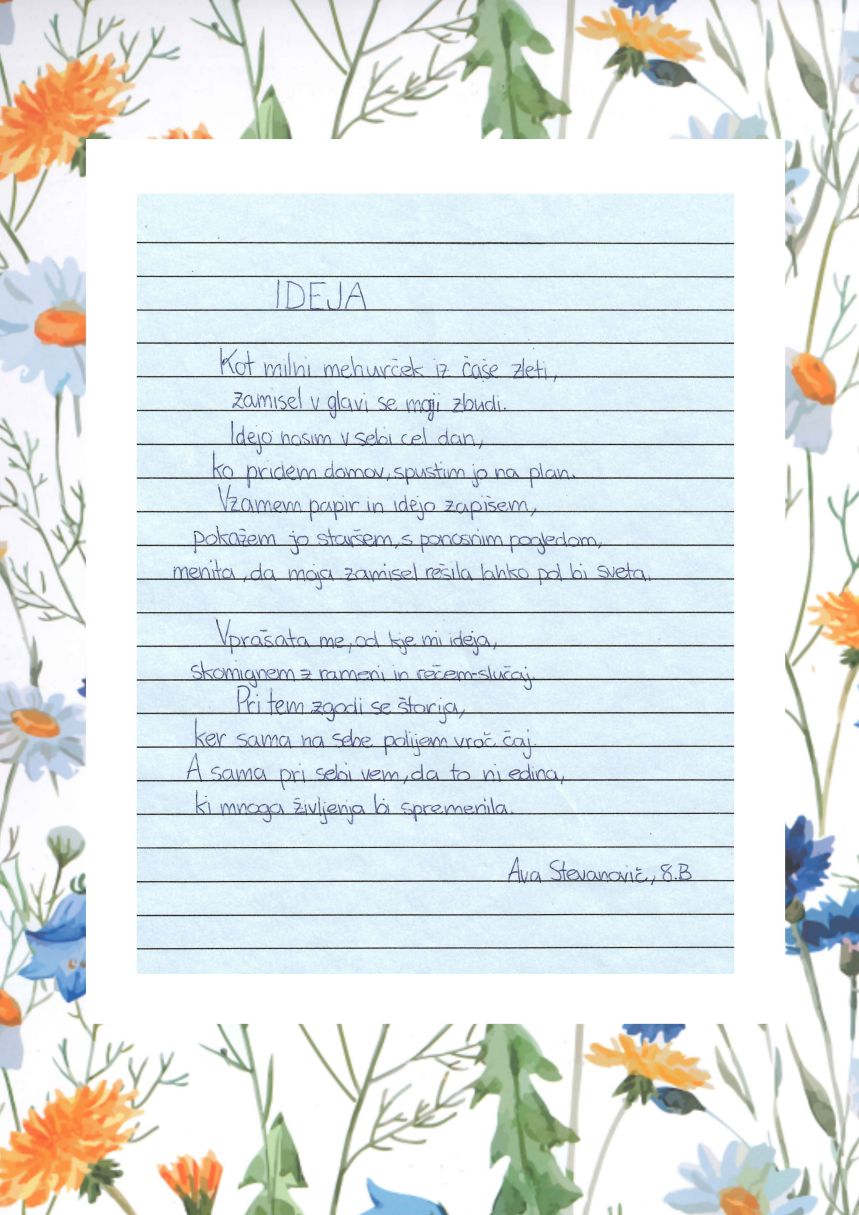 IDEJA
Kot milni mehurček iz čaše zleti,
zamisel v glavi se moji zbudi.
Idejo nosim v sebi cel dan,
ko pridem domov, spustim jo na plan.
Vzamem papir in idejo zapišem,
pokažem jo staršem, s ponosnim pogledom,
menita, da moja zamisel rešila lahko pol bi sveta.
Vprašata me, od kje mi ideja,
skomignem z rameni in rečem-slučaj.
Pri tem zgodi se štorija,
ker sama na sebe polijem vroč čaj.
A sama pri sebi vem, da to ni edina,
ki mnoga življenja bi spremenila.
Ava Stevanovič, 8.B